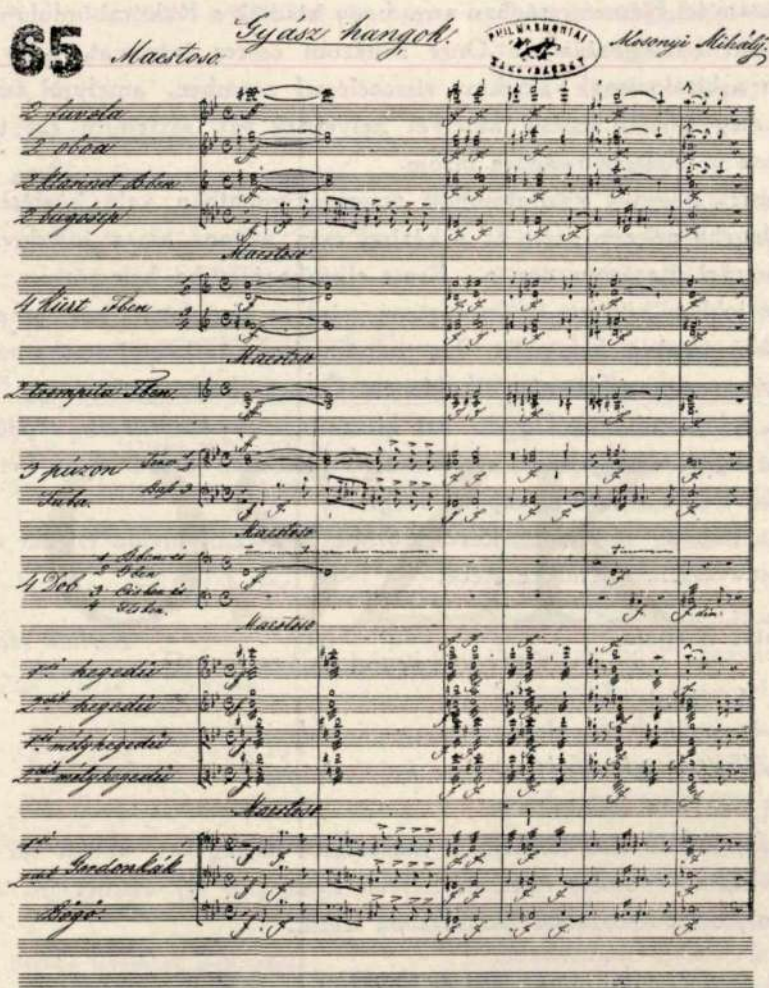 65
Maestoso.
Gyász hangok.
PHILHARMONIAI
Mosonyi Mihály.
2 fuvola
2 oboa
2 klarinet Bben
2 búgósip
Maestoso
4 kürt Fben
Maestoso
2 trompita Fben.
3 púzon Tenor
Tuba. Baß 3
Maestoso
4 Dob
1 Bben és
2 Fben
3 Cisben és
4
Maestoso
1ső hegedű
2dik hegedű
1ső mélyhegedű
2dik mélyhegedű
Maestoso
1ső
2dik Gordonkák
Bőgő.
dim.